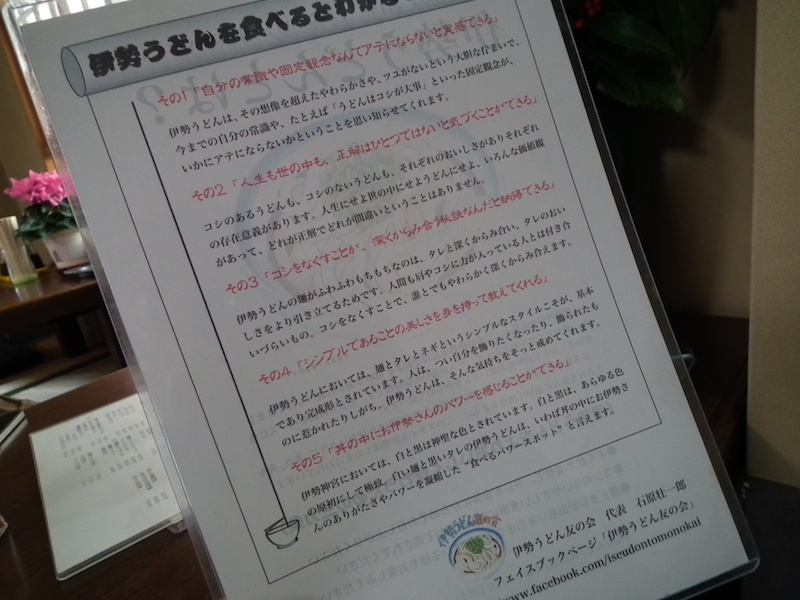 伊勢うどんを食べるとわかる
その1「自分の常識や固定観念なんてアテにならないと実感できる」
伊勢うどんは、その想像を超えたやわらかさや、ツユがないという大胆な佇まいで、
今までの自分の常識や、たとえば「うどんはコシが大事」といった固定観念が、
いかにアテにならないかということを思い知らせてくれます。
その2「人生も世の中も、正解はひとつではないと気づくことができる」
コシのあるうどんも、コシのないうどんも、それぞれのおいしさがありそれぞれ
の存在意義があります。人生にせよ世の中にせようどんにせよ、いろんな価値観
があって、どれが正解でどれが間違いということはありません。
その3「コシをなくすことが、深くからみ合う秘訣なんだと納得できる」
伊勢うどんの麺がふわふわもちもちなのは、タレと深くからみ合い、タレのおい
しさをより引き立てるためです。人間も肩やコシに力が入っている人とは付き合
いづらいもの。コシをなくすことで、誰とでもやわらかく深くからみ合えます。
その4「シンプルであることの美しさを身を持って教えてくれる」
伊勢うどんにおいては、麺とタレとネギというシンプルなスタイルこそが、基本
であり完成形とされています。人は、つい自分を飾りたくなったり、飾られたも
のに惹かれたりしがち。伊勢うどんは、そんな気持ちをそっと戒めてくれます。
その5「丼の中にお伊勢さんのパワーを感じることができる」
伊勢神宮においては、白と黒は神聖な色とされています。白と黒は、あらゆる色
の原初にして極致。白い麺と黒いタレの伊勢うどんは、いわば丼の中にお伊勢さ
んのありがたさやパワーを凝縮した“食べるパワースポット”と言えます。
伊勢うどん友の会
伊勢うどん友の会 代表 石原壮一郎
フェイスブックページ「伊勢うどん友の会」
www.facebook.com/iseudontomonokai